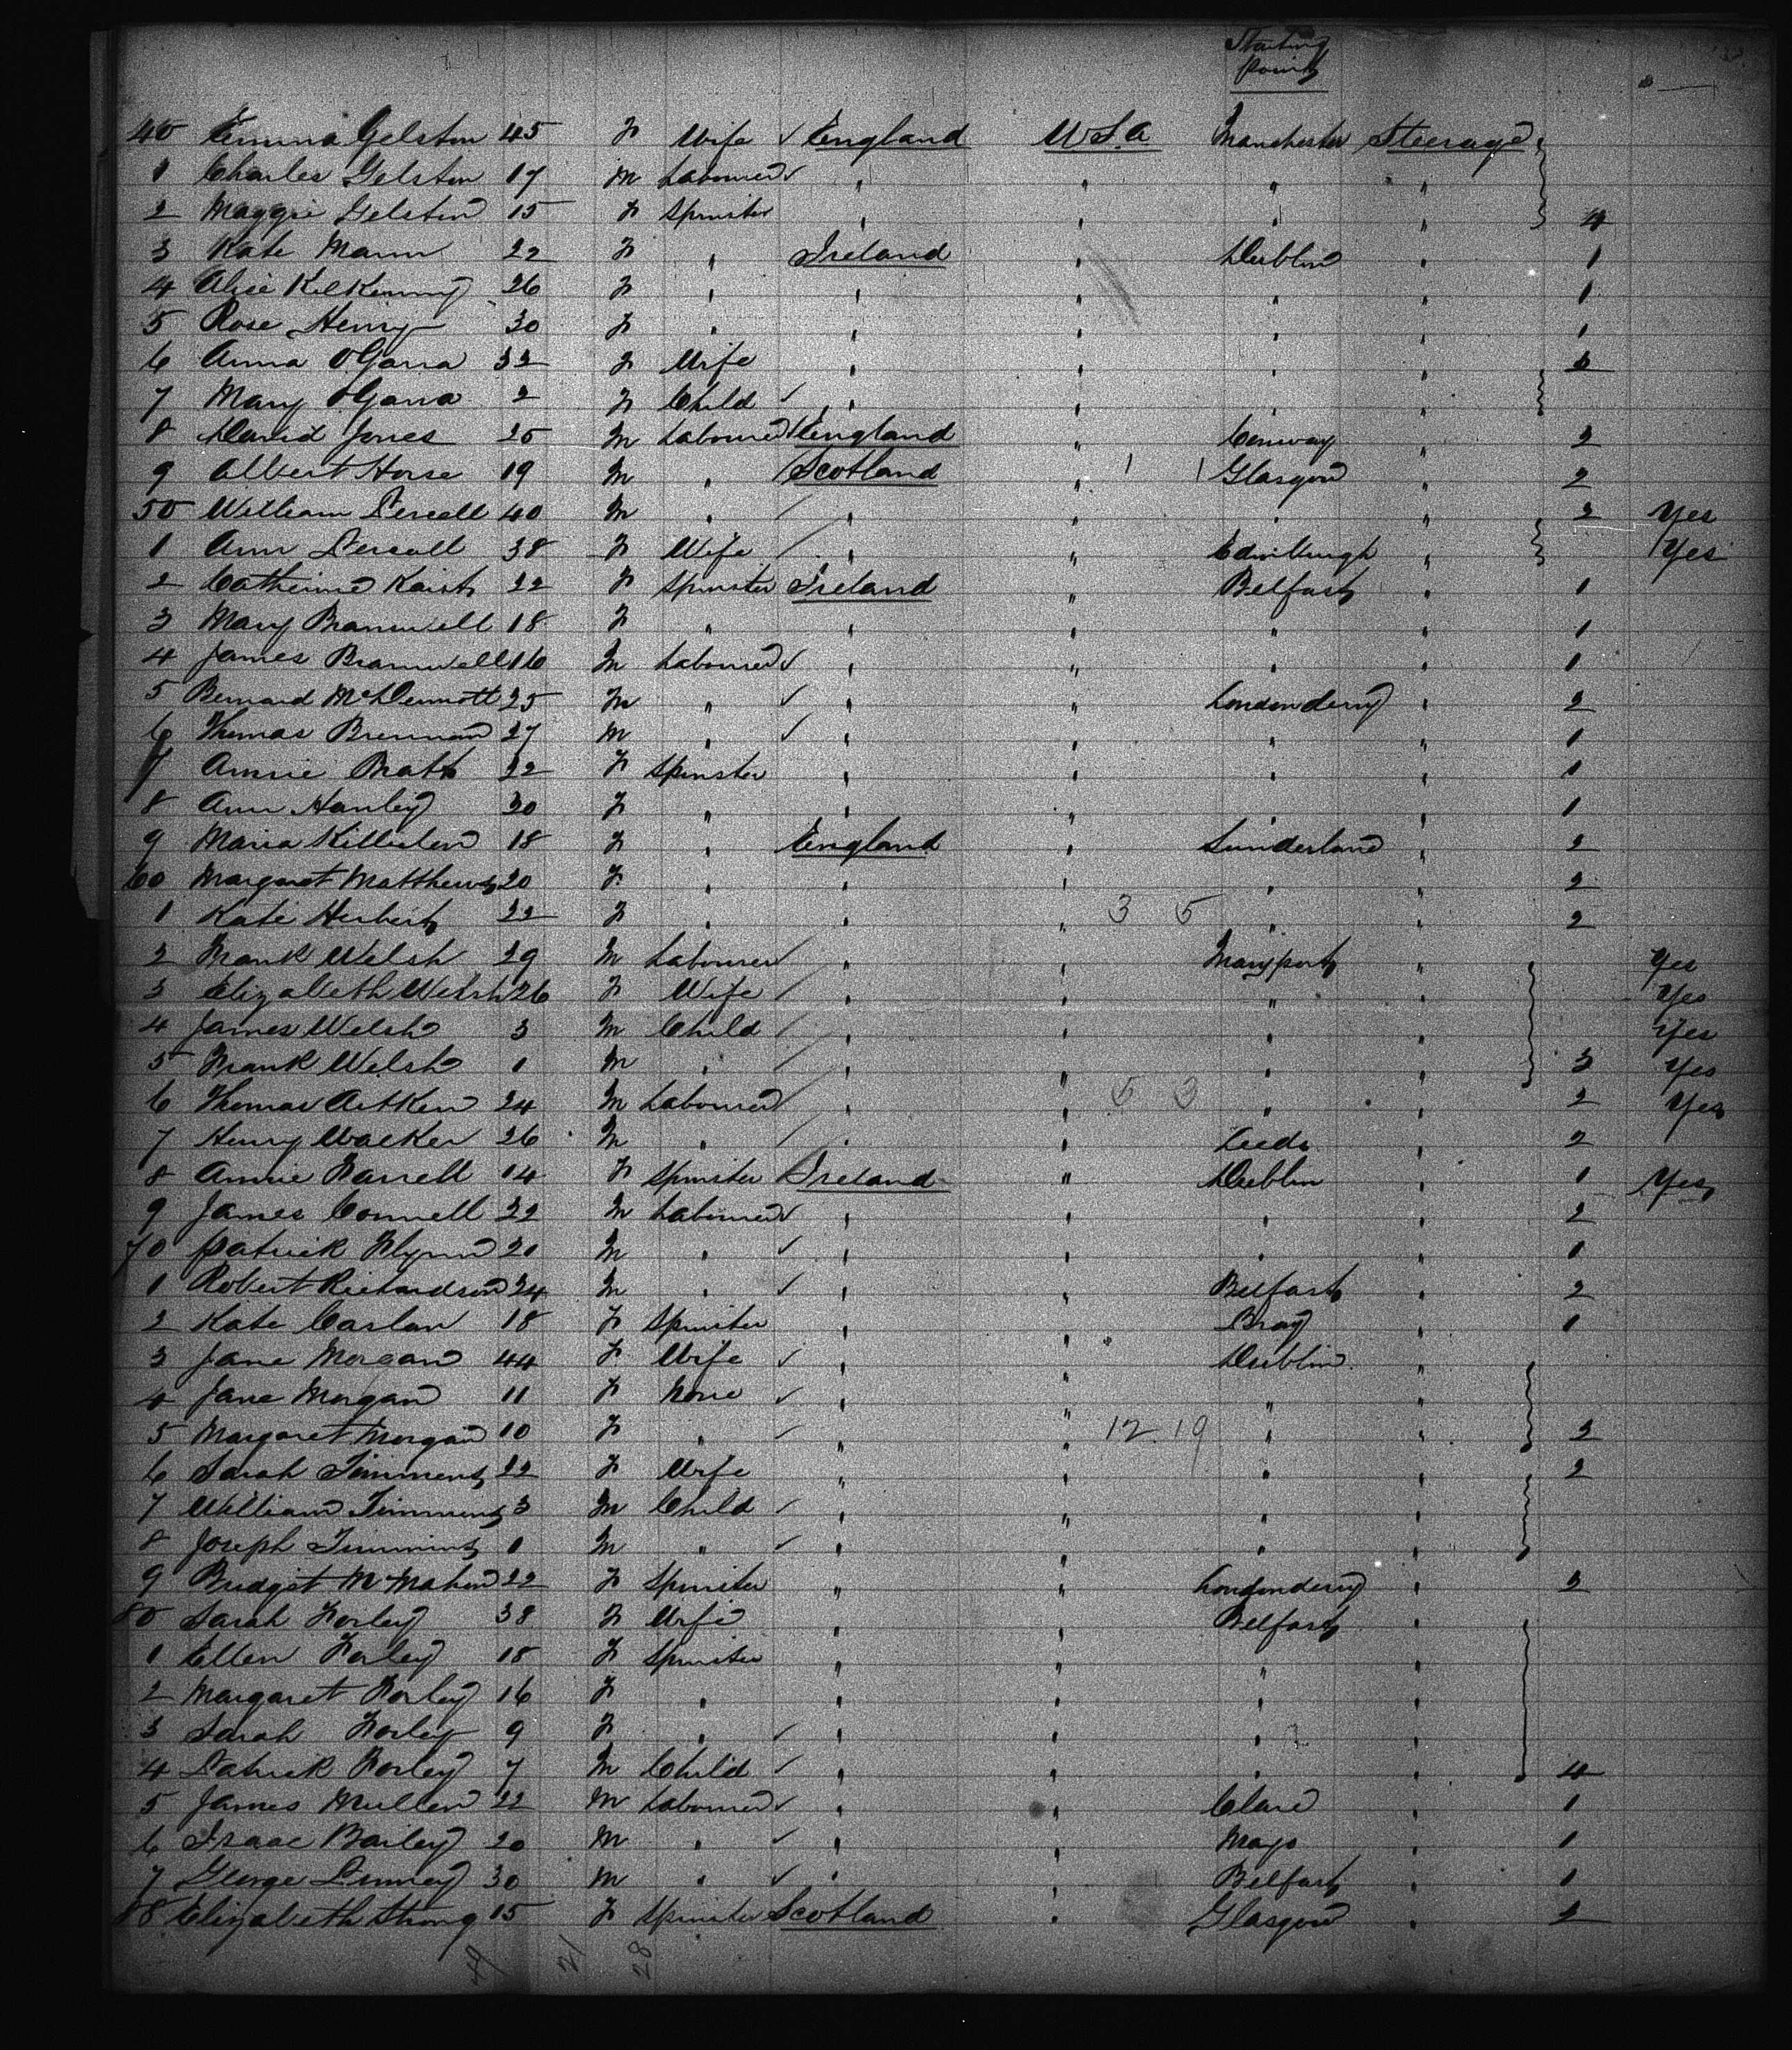 Starting
Point
40 Emma Gelston 45 F Wife ✓ England U.S.A Manchester Steerage
1 Charles Gelston 17 M Labourer ✓ " " " "
2 Maggie Gelston 15 F Spinster " " " " 4
3 Kate Mann 22 F " Ireland " Dublin " 1
4 Alice Kilkenny 26 F " " " " " 1
5 Rose Henry 30 F " " " " " 1
6 Anna O'Gara 32 F Wife " " " " 3
7 Mary O'Gara 2 F Child ✓ " " " "
8 David Jones 25 M Labourer England " Conway " 2
9 Albert Horse 19 M " Scotland " Glasgow " 2
50 William 40 M " / " " " " 2 Yes
1 Ann 38 F Wife / " " Edinburgh " Yes
2 Catherine 22 F Spinster Ireland " Belfast " 1
3 Mary Bramwell 18 F " " " " " 1
4 James Bramwell 16 M Labourer ✓ " " " " 1
5 Bernard McDermott 25 M " ✓ " " Londonderry " 2
6 Thomas Brennan 27 M " ✓ " " " " 1
7 Annie Pratt 22 F Spinster " " " " 1
8 Ann Hanley 20 F " " " " " 1
9 Maria 18 F " England " Sunderland " 2
60 Margaret Matthews 20 F " " " " " 2
1 Kate Herbert 22 F " " " 3 5 " " 2
2 Frank Welsh 29 M Labourer / " " Maryport " Yes
3 Elizabeth Welsh 26 F Wife / " " " " Yes
4 James Welsh 3 M Child / " " " " Yes
5 Frank Welsh 1 M " / " " " " 3 Yes
6 Thomas Aitken 24 M Labourer / " " 5 3 " " 2 Yes
7 Henry Walker 26 M " / " " Leeds " 2
8 Annie Farrell 14 F Spinster Ireland " Dublin " 1 Yes
9 James Connell 22 M Labourer ✓ " " " " 2
70 Patrick Flynn 20 M " ✓ " " " " 1
1 Robert Richardson 24 M " ✓ " " Belfast " 2
2 Kate Caslan 18 F Spinster " " Bray " 1
3 Jane Morgan 44 F Wife ✓ " " Dublin "
4 Jane Morgan 11 F None ✓ " " " "
5 Margaret Morgan 10 F " ✓ " " 12 19 " " 3
6 Sarah Timmins 22 F Wife " " " " 2
7 William Timmins 3 M Child ✓ " " " "
8 Joseph Timmins 1 M " ✓ " " " "
9 Bridget McMahon 22 F Spinster " " Londonderry " 3
80 Sarah Forley 38 F Wife " " Belfast "
1 Ellen Forley 18 F Spinster " " " "
2 Margaret Forley 16 F " " " " "
3 Sarah Forley 9 F " ✓ " " " "
4 Patrick Forley 7 M Child ✓ " " " " 4
5 James Mullen 22 M Labourer ✓ " " Clare " 1
6 Isaac Bailey 20 M " ✓ " " Mayo " 1
7 George 30 M " ✓ " " Belfast " 1
88 Elizabeth Strong 15 F Spinster Scotland " Glasgow " 2
49 21 28